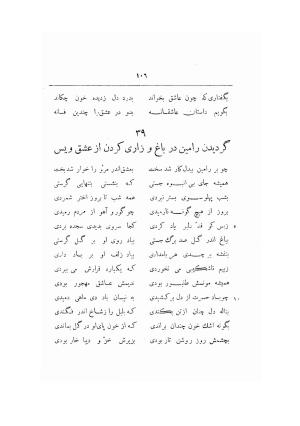 ۱۰۶
بگفتاری که چون عاشق بخواند بدرد دل زدیده خون چکاند
بگویم داستان عاشقانه بدو در عشق را چندین فسانه
۳۹
گردیدن رامین در باغ و زاری کردن از عشق ویس
چو بر رامین بیدل کار شد سخت بعشق اندر مرو را خوار شد بخت
همیشه جای بی انبوه جستی که بنشستی بتنهایی گرستی
بشب پهلو سوی بستر نبردی همه شب تا بروز اختر شمردی
بروز از هیچ گونه نارمیدی چو گور و آهو از مردم رمیدی
ز بس کو قد دلبر یاد کردی کجا سروی بدیدی سجده بردی
بباغ اندر گل صد برگ جستی بیاد روی او بر گل گرستی
بنفشه بر چدی هر بامدادی بیاد زلف او بر دل نهادی
زبیم ناشکیبی می نخوردی که یکباره قرارش می ببردی
همیشه مونسش طنبور بودی ندیمش عاشق مهجور بودی
چو باد حسرت از دل بر کشیدی به نیسان باد دی ماهی دمیدی
بناله دل چنان از تن بکندی که بلبل را ز شاخ اندر فگندی
بگونه اشک خون چندان براندی که از خون پای او در گل بماندی
بچشمش روز روشن تار بودی بزیرش خز و دیبا خار بودی